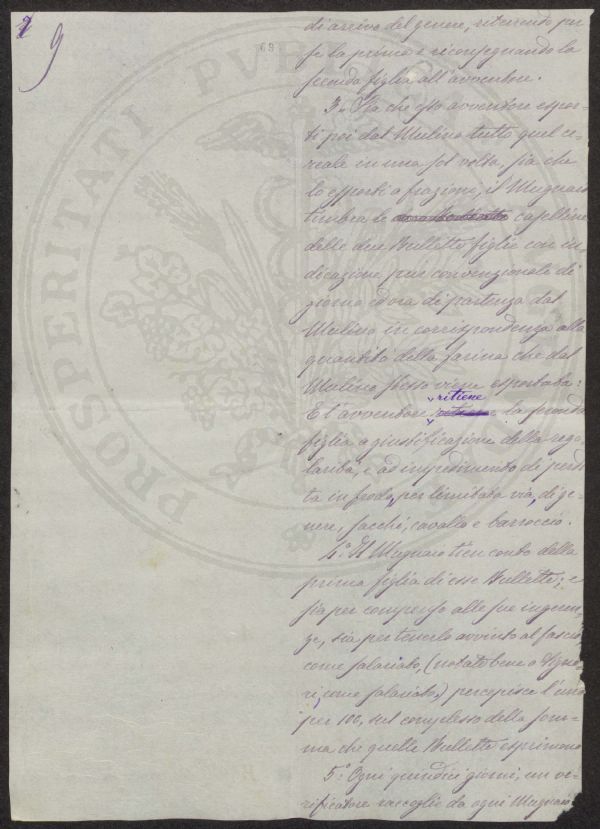 9
di arrivo del genere, ritenendo per
se la prima e riconsegnando la
seconda figlia all'avventore.
3.° Sia che esso avventore espor-
ti poi dal Mulino tutto quel ce-
reale in una sol volta, sia che
lo esporti a frazione, il Mugnaio
timbra le caselline
delle due Bullette figlie con in-
dicazione pure convenzionale di
giorno ed ora di partenza dal
Mulino in corrispondenza alla
quantità della farina che dal
Mulino stesso viene esportata:
E l'avventore ritiene la seconda
figlia a giustificazione della rego-
larità, e ad impedimento di perdi-
ta in frodo, per limitata via, di ge-
nere, sacchi, cavallo e barroccio.
4.° Il Mugnaio tien conto della
prima figlia di esse Bullette; e
sia per compenso alle sue ingeren-
ze, sia per tenerlo avvinto al fascio
come salariato, (notate bene o Signo-
ri, come salariato,) percepisce l'uno
per 100, sul complesso della som-
ma che quelle Bullette esprimono
5.° Ogni quindici giorni, un ve-
rificatore raccoglie da ogni Mugnaio
PROSPERITATI PUBL